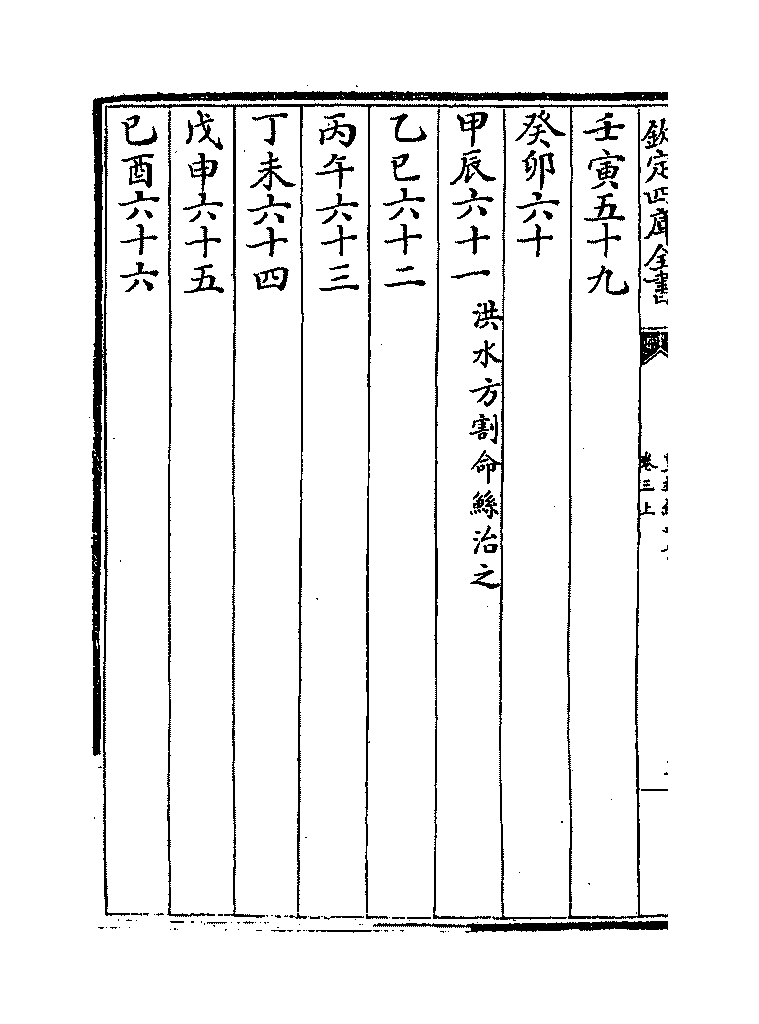 欽定四庫全書
卷三上
壬寅五十九
癸卯六十
甲辰六十一 洪水方割命鯀治之
乙巳六十二
丙午六十三
丁未六十四
戊申六十五
己酉六十六